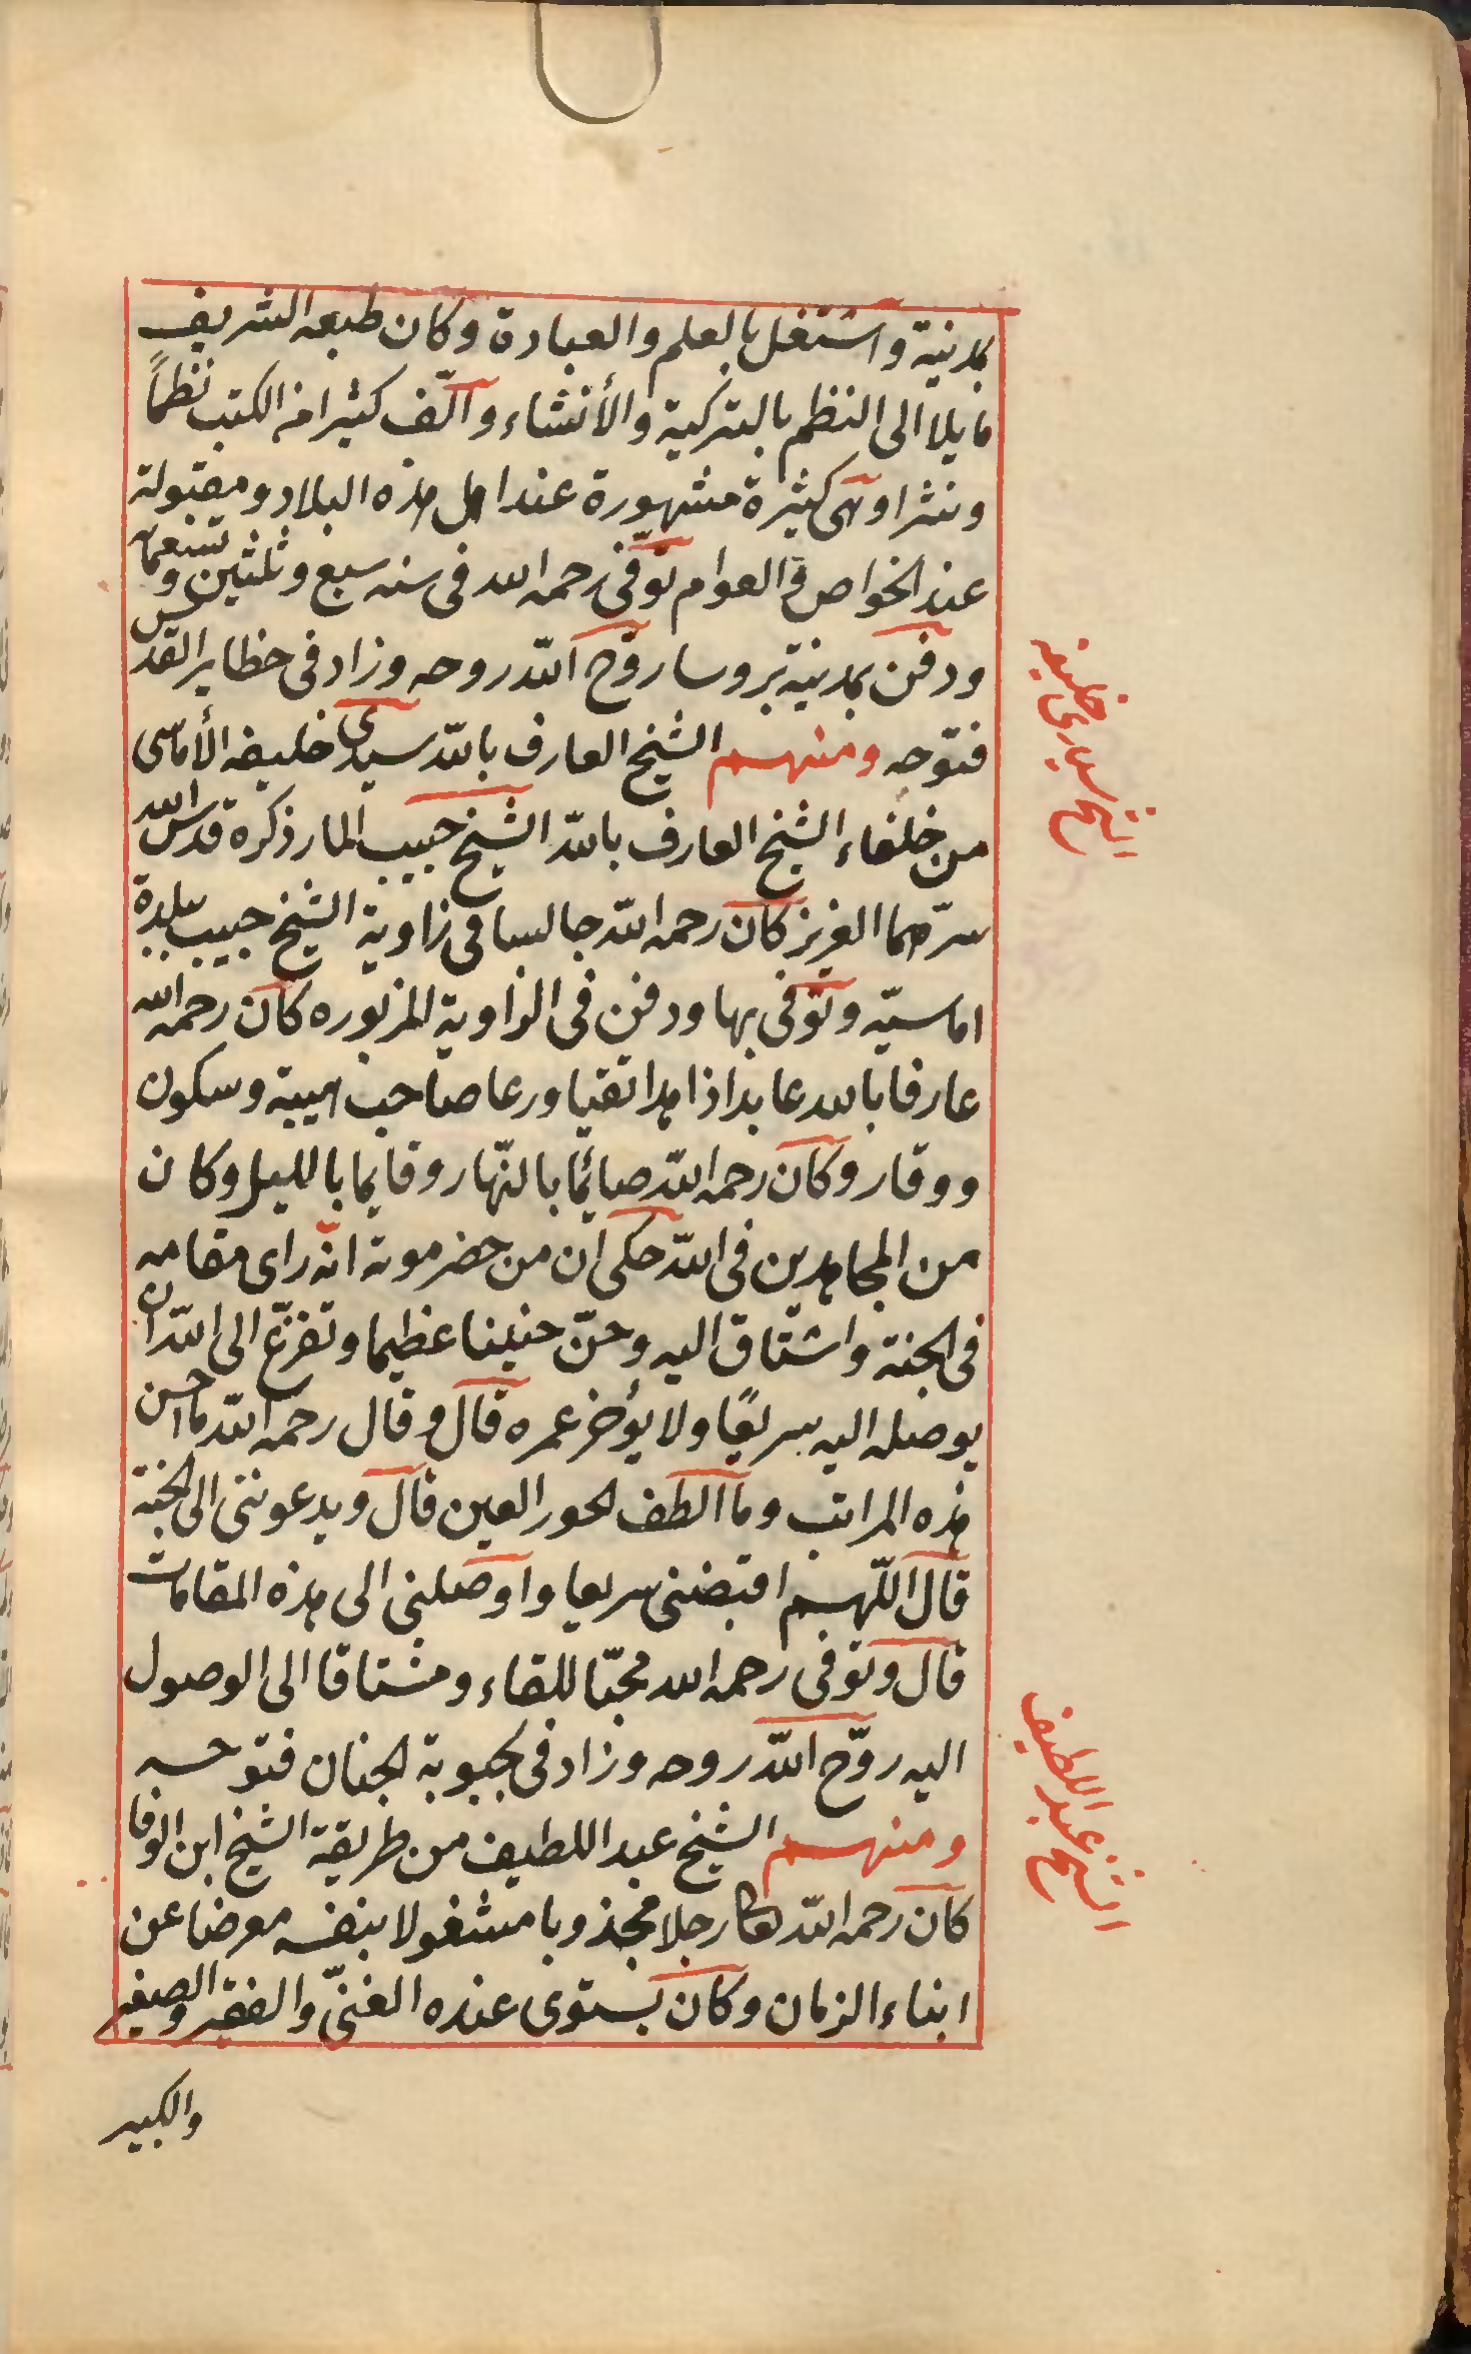 بمدينة واشتغل بالعلم والعبادة وكان طبعه الشريف
مايلا الى النظم بالتركية والأنشاء والّف كثيرا من الكتب نظماً
ونثرا وهى كثيرة مشهورة عند اهل هذه البلاد ومقبولة
عند الخواص والعوام توفّى رحمه الله فى سنه سبع وثلثين وتسعمائة
ودفن بمدينة بروسا روّح الله روحه وزاد فى حظاير القدس
فتوحه ومنهم الشيخ العارف بالله سيدى خليفه الأماسى
من خلفاء الشيخ العارف بالله الشيخ حبيب المار ذكره قدس الله
سرّهما العزيز كان رحمه الله جالسا فى زاوية الشيخ حبيب ببلدة
اماسيّه وتوفى بها ودفن فى الزاوية المزبوره كان رحمه الله
عارفا بالله عابدا زاهدا تقيا ورعا صاحب هيبة وسكون
ووقار وكان رحمه الله صائما بالنّهار وقايما بالليل وكان
من المجاهدين فى الله حكى ان من حضر موته انه راى مقامه
فى الجنة واشتاق اليه وحنّ حنينا عظيما وتضرّع الى الله ان
يوصله اليه سريعًا ولا يؤخر عمره قال وقال رحمه الله ما احسن
هذه المراتب وما الطف الحور العين قال ويدعوننى الى الجنة
قال اللّهم اقبضنى سريعا واوصلنى الى هذه المقامات
قال وتوفى رحمه الله محبّا للقاء ومشتاقا الى الوصول
اليه روّح الله روحه وزاد فى بحبوبة الجنان فتوحه
ومنهم الشيخ عبد اللطيف من طريقة الشيخ ابن الوفا
كان رحمه الله رجلا مجذوبا مشغولا بنفسه معرضا عن
ابناء الزمان وكان يستوى عنده الغنىّ والفقير والصغير
والكبير
الشيخ سيدى خليفه
الشيخ عبد اللطيف